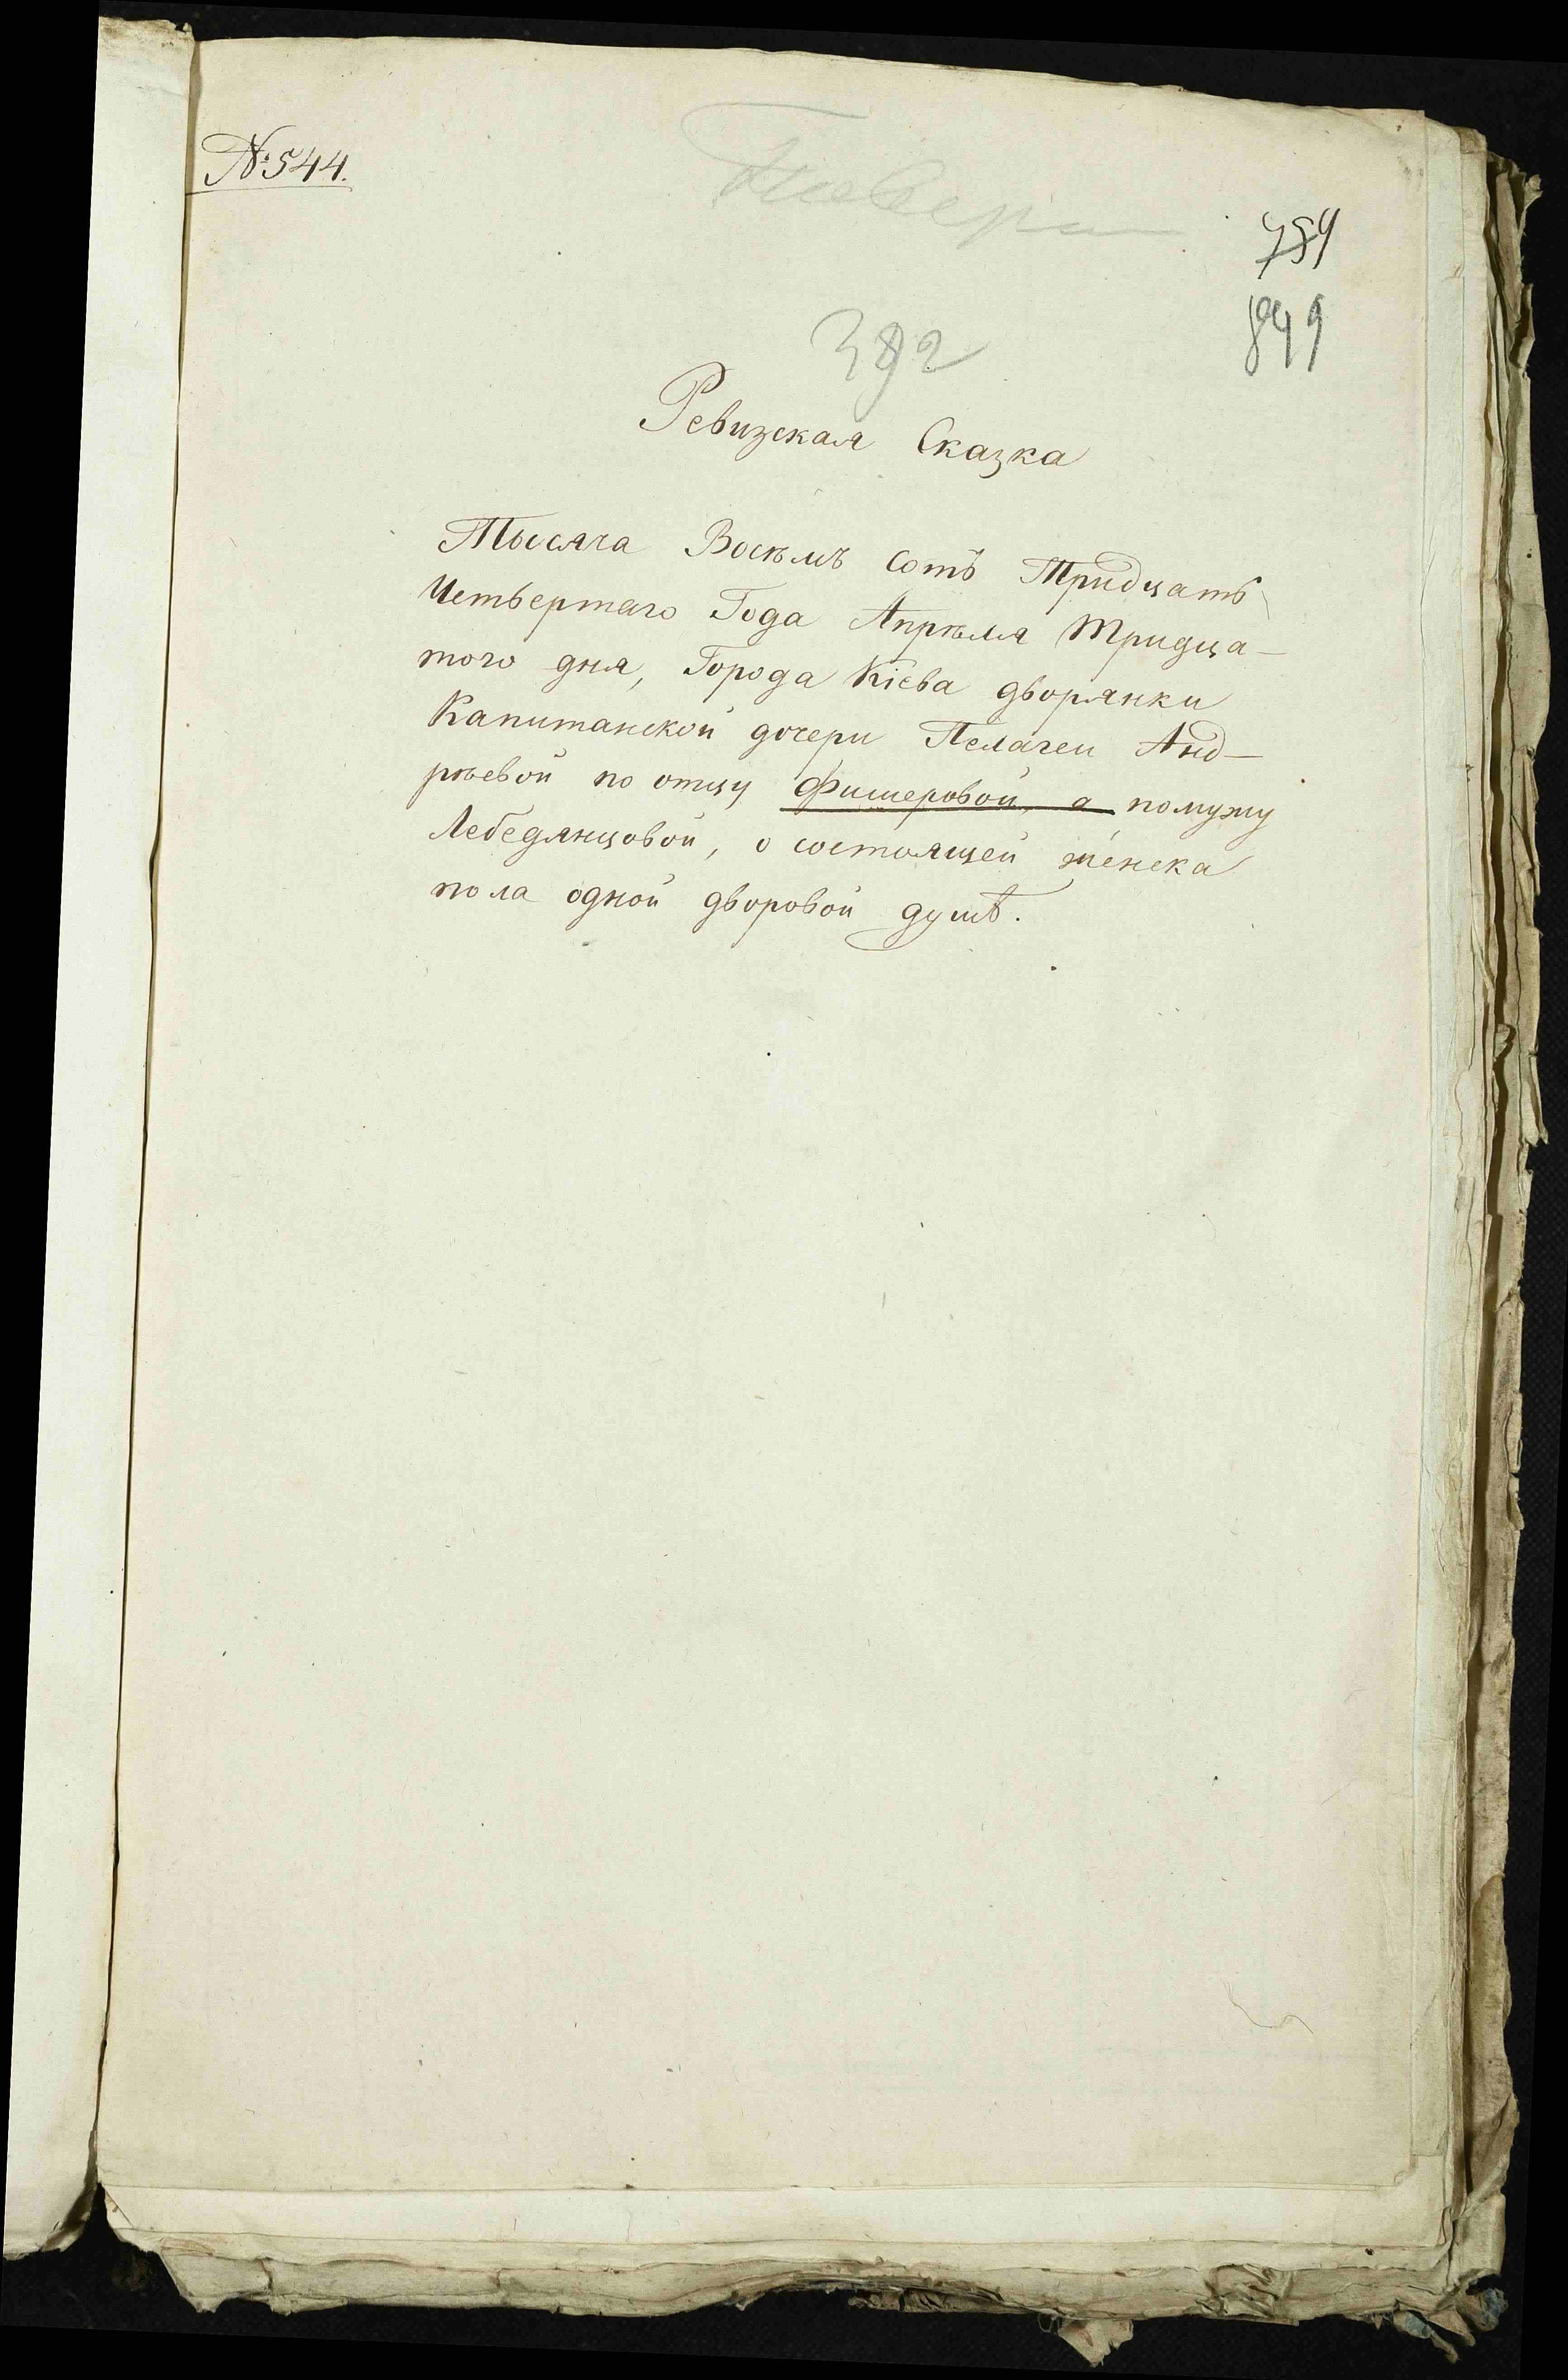 № 544.
849
Ревизская Сказка
Тысяча Восѣмъ сотъ Тридцать
Четвертаго Года Апрѣля Тридца–
того дня, Города Кіева дворянки
Капитанской дочери Пелагеи Анд–
рѣевой по отцу Фишеровой, а помужу
Лебедянцовой, о состоящей женска
пола одной дворовой душѣ.